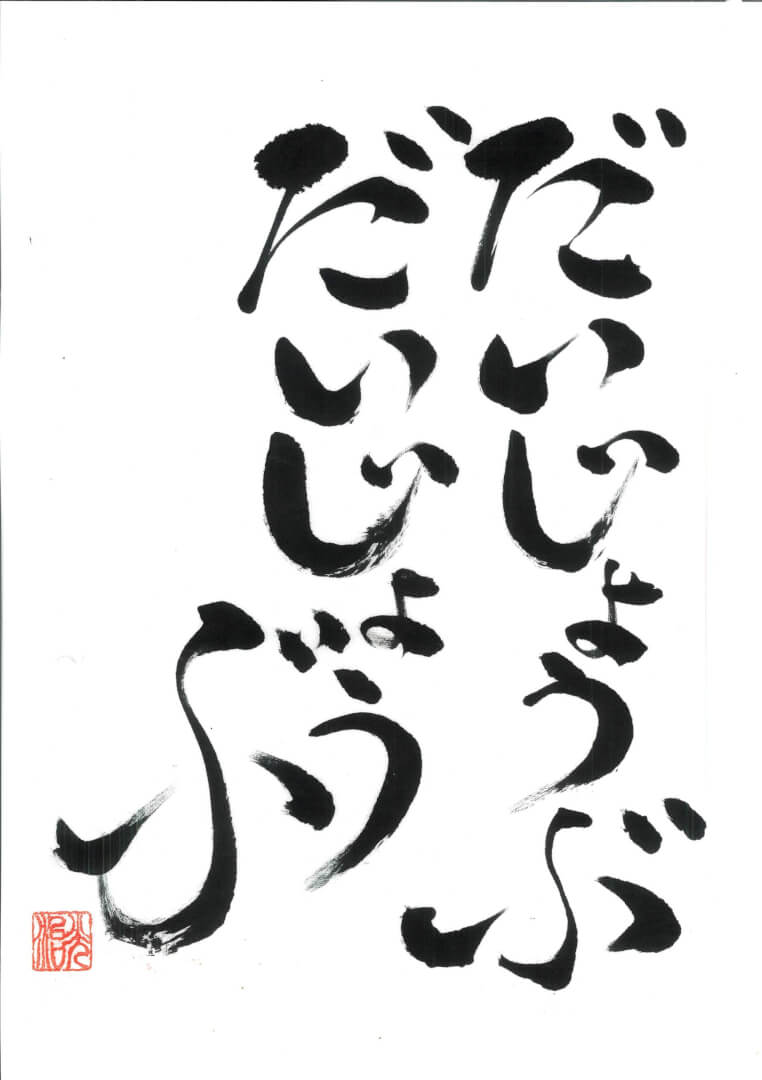 だいじょうぶ
だいじょうぶ